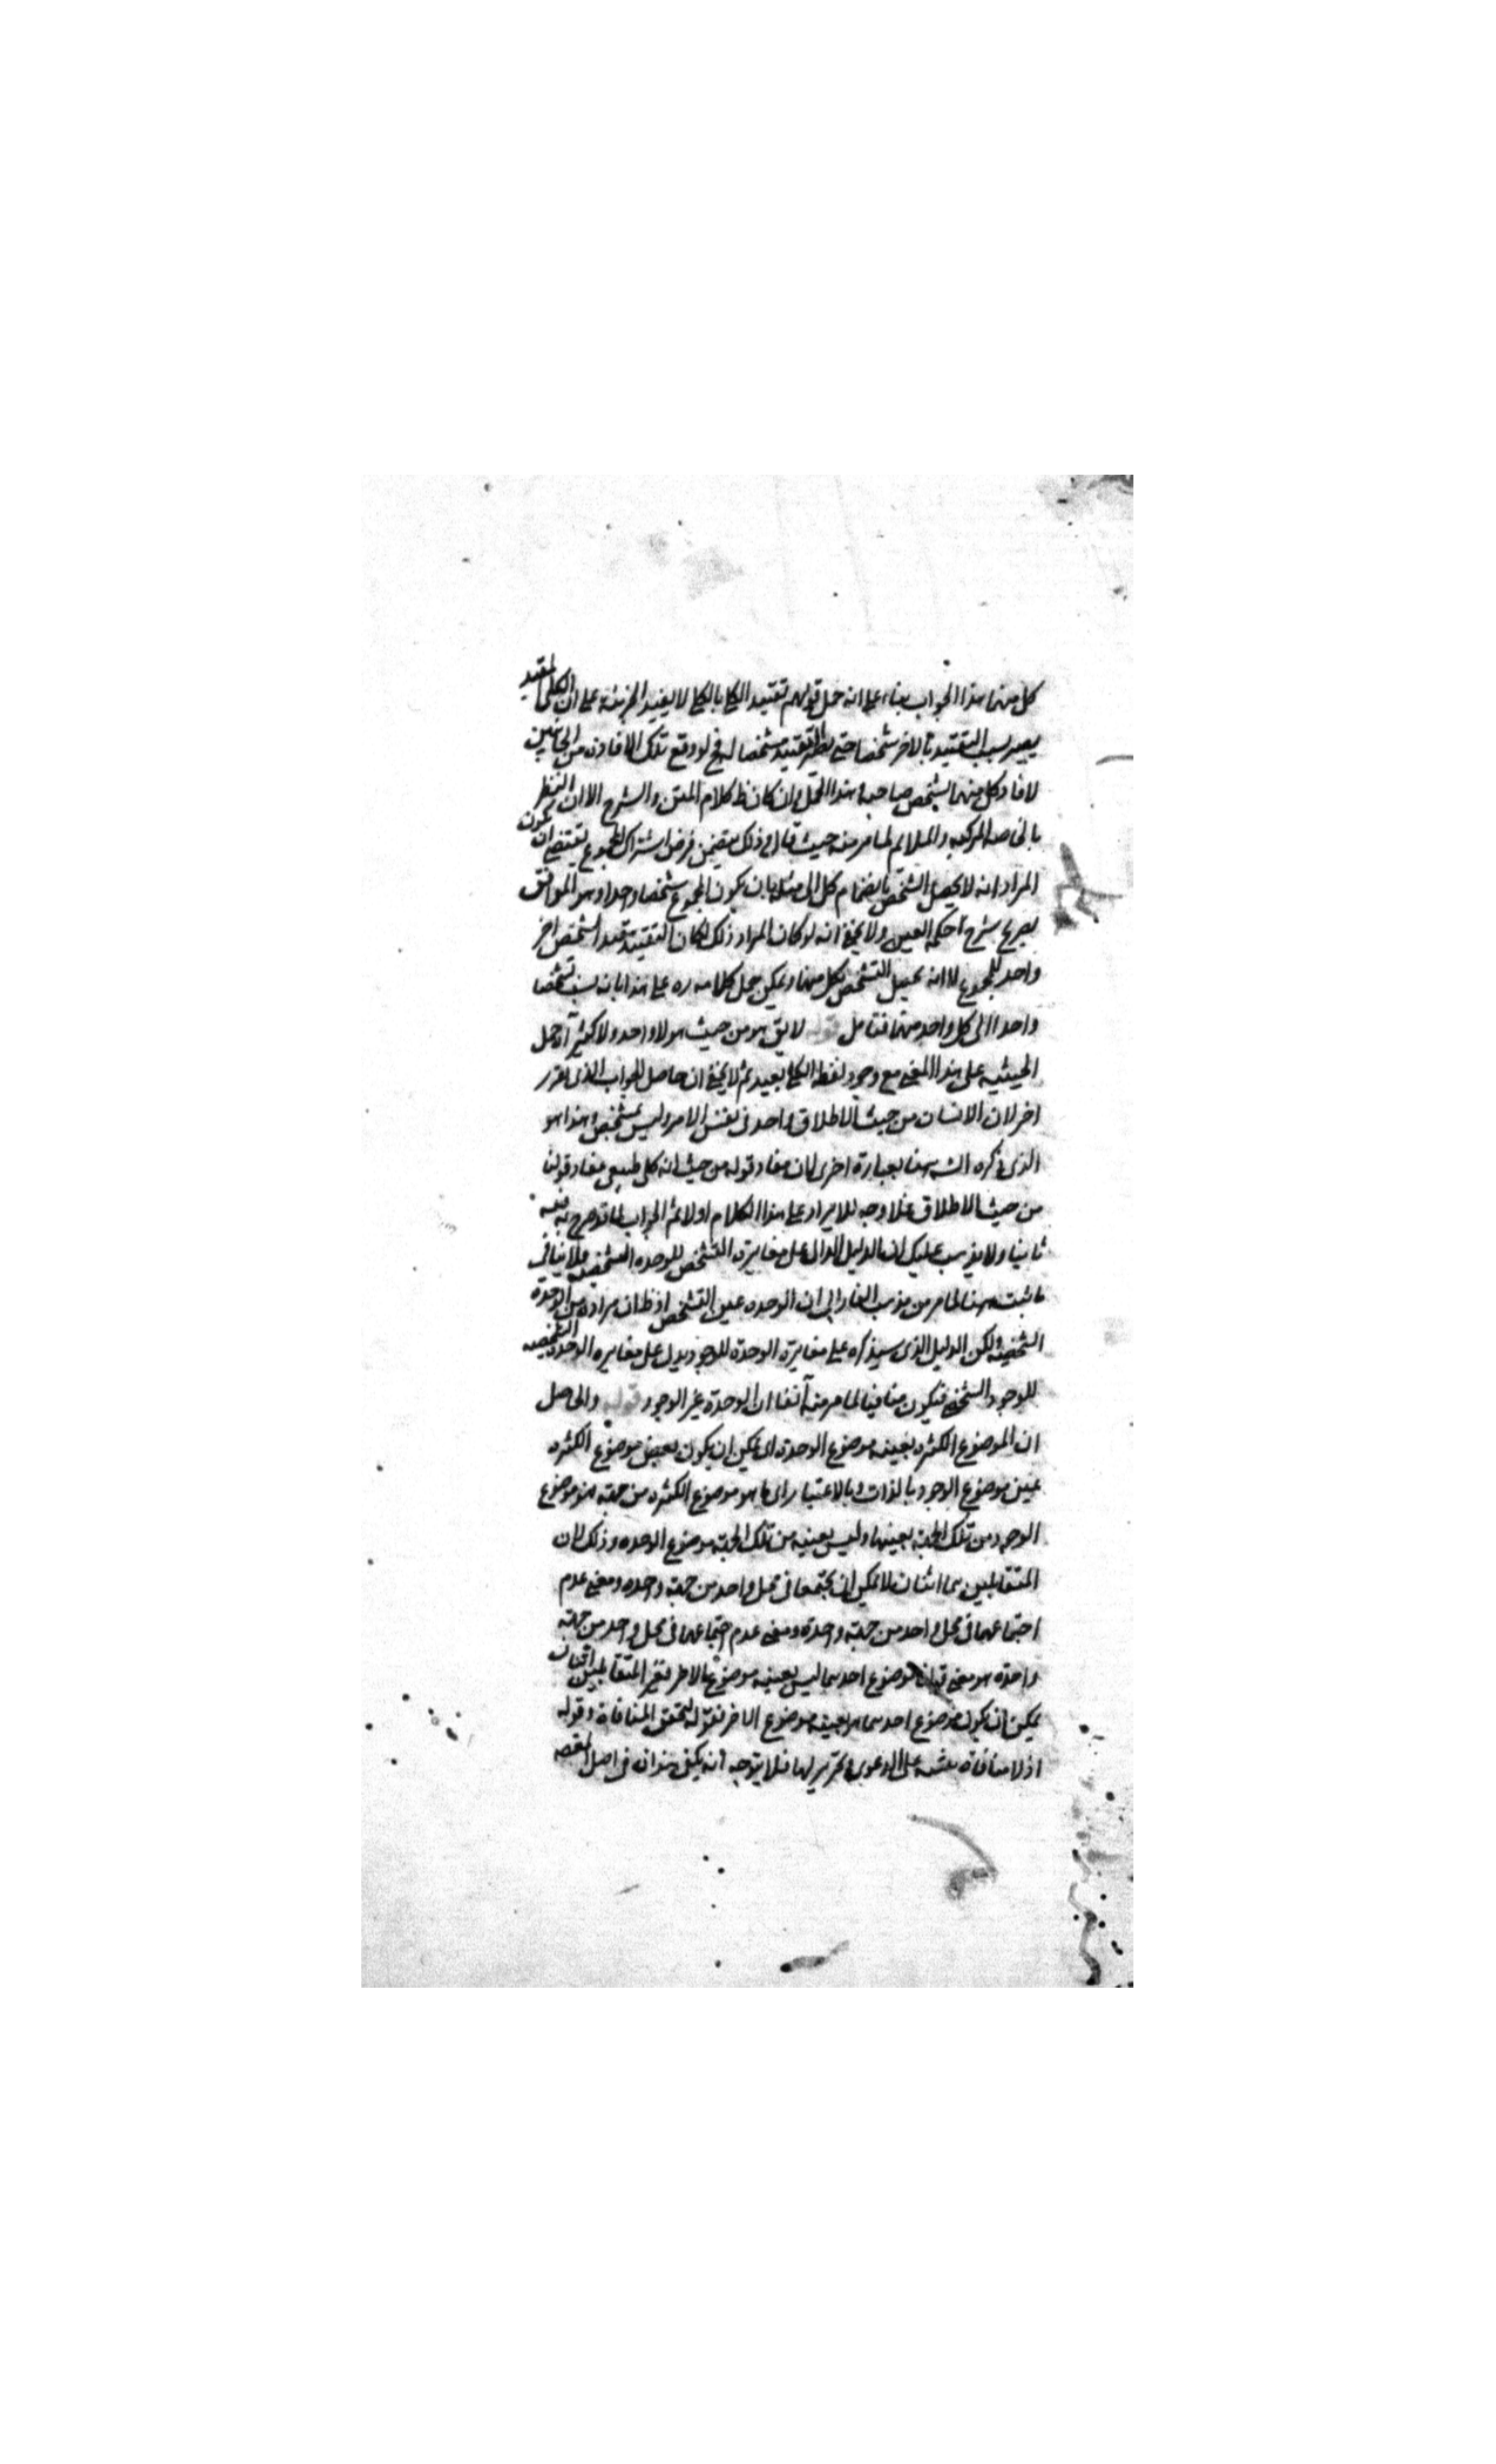 كل منهما هذا الجواب بناء على انه حمل قولهم تقييد الكلي بالكلي لا يفيد الجزئية على ان الكلي المقيد
يصير بسبب التقييد بالاخر شخصا حتى التقييد مشخصا له فح لو وقع تلك الافادة من الجانبين
لافاد كل منهما تشخص صاحبه وهذا الحمل وان كان ظ كلام المتن والشرح الا ان النظر
المركبة والملائم لما مر منه حيث قال ذلك يتضمن فرض اشتراك المجموع يقتضي ان يكون
المراد انه لا يحصل التشخص بانضمام كل الى مثله بان يكون المجموع شخصا واحدا وهو الموافق
شرح حكمة العين ولا يخفى انه لو كان المراد ذلك لكان التقييد تشخص اخر
واحد للمجموع لا انه يحصل التشخص لكل منهما ويمكن حمل كلامه ره على هذا بانه تشخصا
واحدا الى كل واحد منهما فتامل قوله لا يق هو من حيث هو لا واحد ولا كثير آه حمل
الحيثية على هذا المعنى مع وجود لفظ الكلي بعيد ثم لا يخفى ان حاصل الجواب الذى
اخر لان الانسان من حيث الاطلاق واحد فى نفس الامر وليس بمشخص وهذا هو
الذى ذكره الش هنا بعبارة اخرى لان مفاد قوله من حيث انه كلى طبيعى مفاد قولنا
من حيث الاطلاق فلا وجه للايراد على هذا الكلام اولا ثم الجواب
ثانيا ولا يذهب عليك ان الدليل الدال على مغايرة التشخص للوحده الشخصية فلا ينافى
ما ثبت هنا لما مر من مذهب الفارابى ان الوحده عين التشخص اذ ظ ان مراده من الوحدة
الشخصية لكن الدليل الذى سيذكره على مغايرة الوحدة للوجود يدل على مغايره الوحدة الشخصيه
للوجود الشخصى فيكون منافيا لما مر منه آنفا ان الوحدة غير الوجود قوله والحاصل
ان الموضوع الكثره بعينه موضوع الوحدة اى يمكن ان يكون بعض موضوع الكثره
عين موضوع الوجود بالذات وبالاعتبار اى ما هو موضوع الكثره من جهة هو موضوع
الوجود من تلك الجهة بعينها وليس بعينه من تلك الجهة موضوع الوحده وذلك لان
المتقابلين هما اثنان لا يمكن ان يجتمعا فى محل واحد من جهة واحده ومعنى عدم
اجتماعهما فى محل واحد من جهة واحدة ومعنى عدم اجتماعهما فى محل واحد من جهة
واحدة هو معنى ان موضوع احدهما ليس بعينه موضوع الاخر فغير المتقابلين اثنان
يمكن ان يكون موضوع احدهما هو بعينه موضوع الاخر فقوله لتحقق المنافاة وقوله
اذ لا منافاة على الدعوى وتحرير لها فلا يتوجه انه يكفى هذا فى اصل المقصد